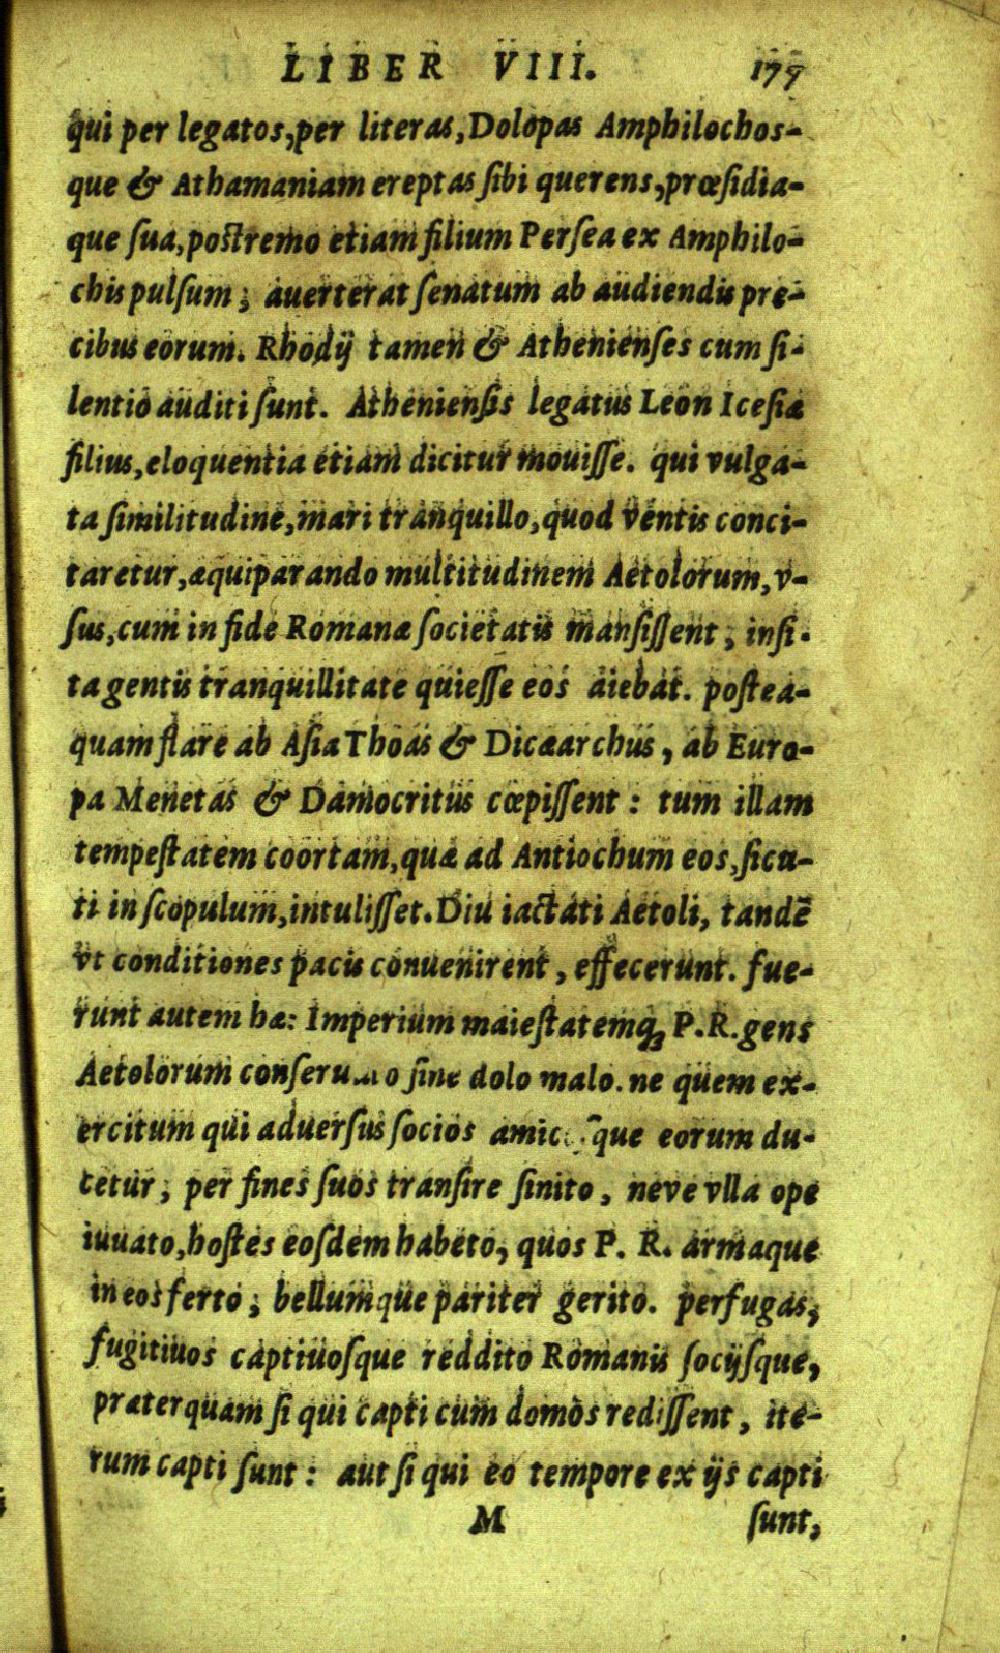 LIBER VIII. 177
qui per legatos, per literas, Dolopas Amphilochos-
que & Athamaniam ereptas sibi querens, præsidia-
que sua, postremo etiam filium Persea ex Amphilo-
chis pulsum; auerterat senatum ab audiendis pre-
cibus eorum. Rhodij tamen & Athenienses cum si-
lentio auditi sunt. Atheniensis legatus Leon Icesiæ
filius, eloquentia etiam dicitur mouisse. qui vulga-
ta similitudine, mari tranquillo, quod ventis conci-
taretur, æquiparando multitudinem Aetolorum, v-
sus, cum in fide Romanæ societatis mansissent, insi-
ta gentis tranquillitate quiesse eos aiebat. postea-
quam flare ab Asia Thoas & Dicæarchus, ab Euro-
pa Menetas & Damocritus cœpissent: tum illam
tempestatem coortam, quæ ad Antiochum eos, sicu-
ti in scopulum, intulisset. Diu iactati Aetoli, tandē
vt conditiones pacis conuenirent, effecerunt. fue-
runt autem hæ: Imperium maiestatemq; P. R. gens
Aetolorum sine dolo malo. ne quem ex-
ercitum qui aduersus socios eorum du-
cetur; per fines suos transire sinito, neve vlla ope
iuuato, hostes eosdem habeto, quos P. R. armaque
in eos ferto; bellumque pariter gerito. perfugas,
fugitiuos captiuosque reddito Romanis socijsque,
præterquam si qui capti cum domos redissent, ite-
rum capti sunt: aut si qui eo tempore ex ijs capti
M sunt,